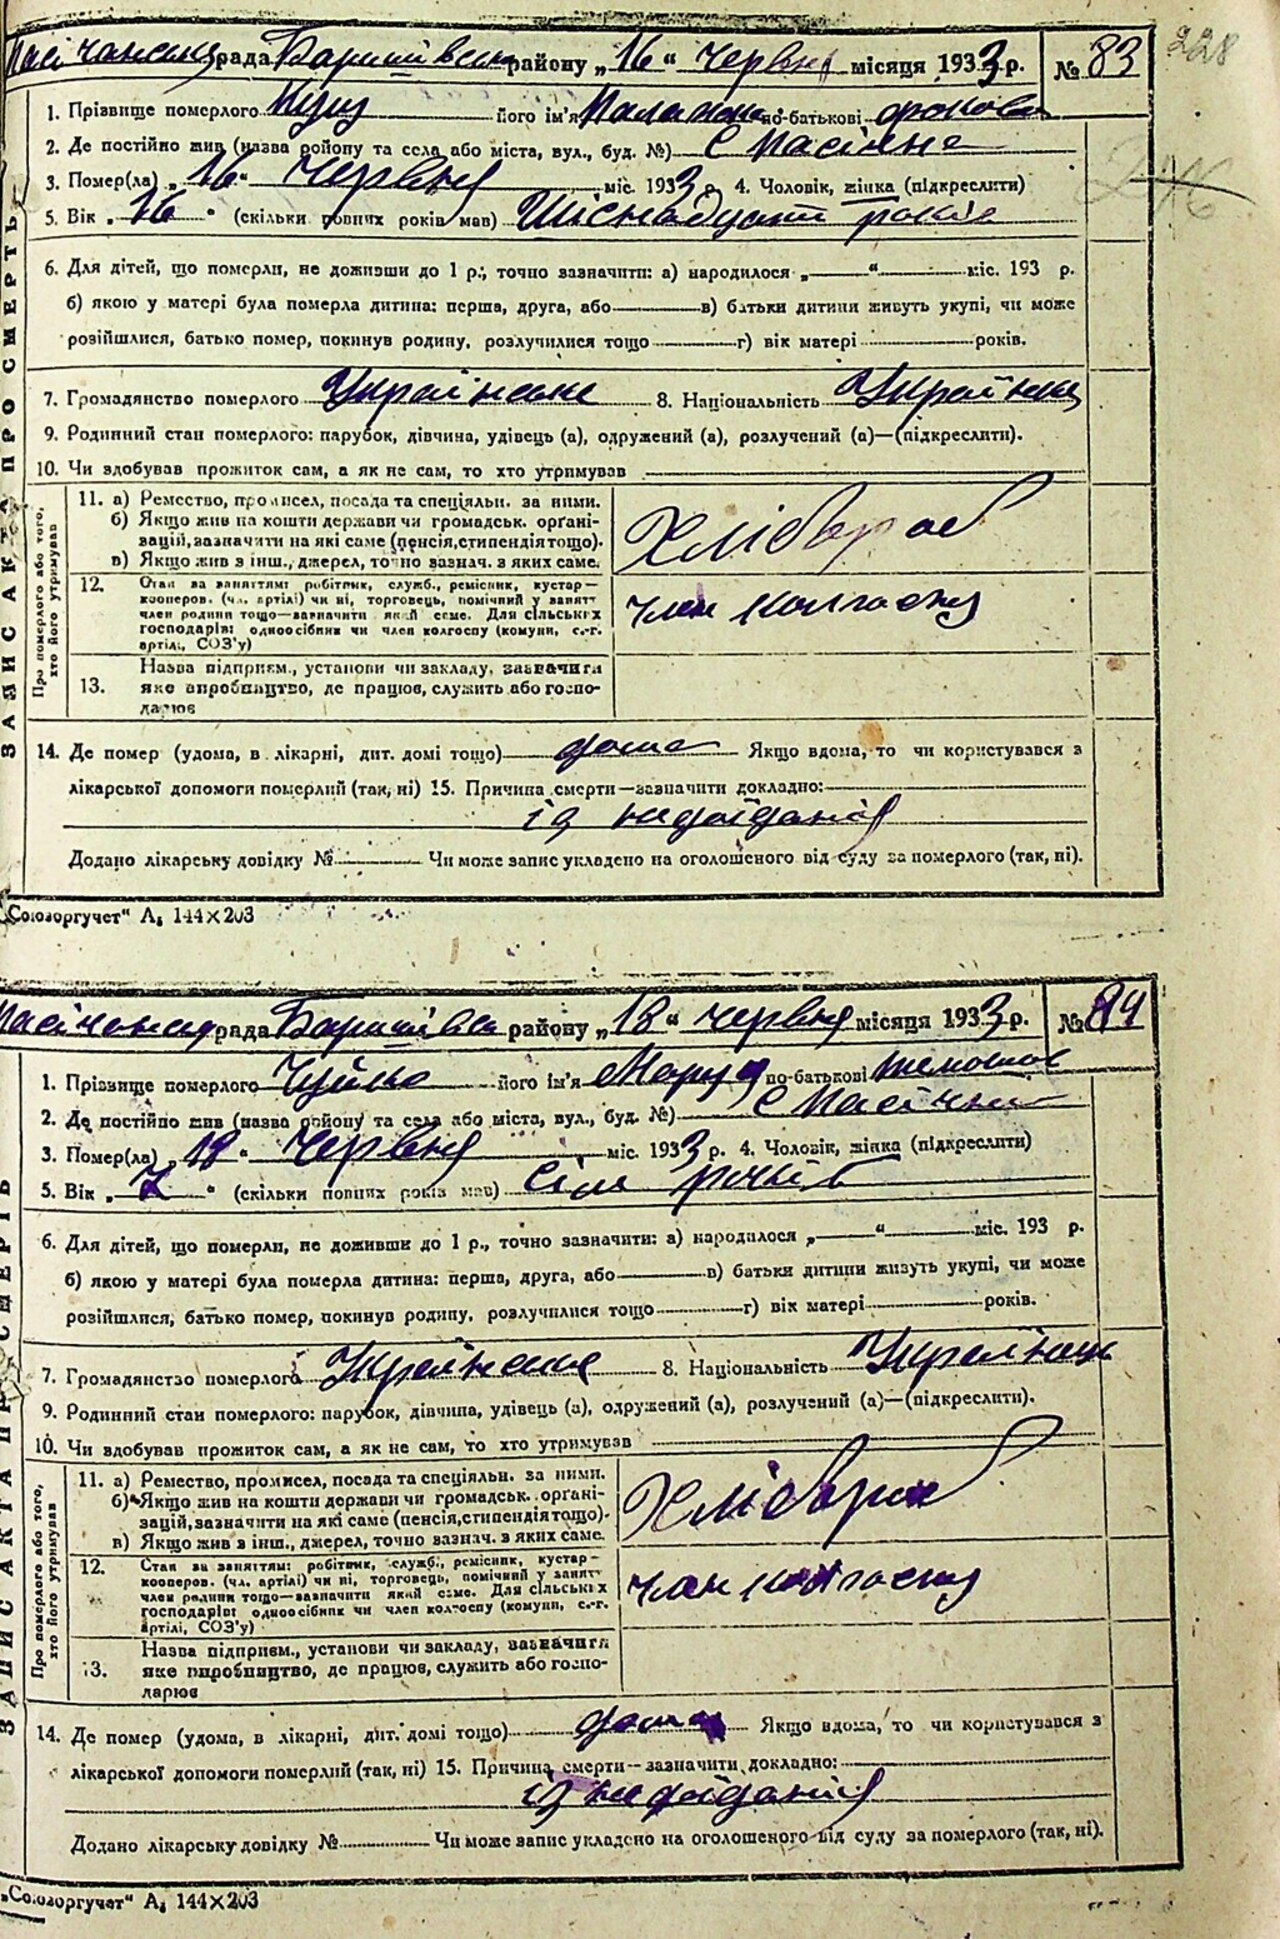 Пасічанська рада Баришівськ району „16“ червня місяця 1933 р. № 83
228
1. Прізвище померлого Куц його ім'я Палажка по-батькові
2. Де постійно жив (назва району та села або міста, вул., буд. №) С Пасічна
3. Помер(ла) „16“ Червня міс. 1933 р. 4. Чоловік, жінка (підкреслити)
5. Вік „16“ (скільки повних років мав) Шіснадцять років
6. Для дітей, що померли, не доживши до 1 р., точно зазначити: а) народилося „ “ міс. 193 р.
б) якою у матері була померла дитина: перша, друга, або в) батьки дитини живуть укупі, чи може
розійшлися, батько помер, покинув родину, розлучилися тощо г) вік матері років.
7. Громадянство померлого Українське 8. Національність Українка
9. Родинний стан померлого: парубок, дівчина, удівець (а), одружений (а), розлучений (а)—(підкреслити).
10. Чи здобував прожиток сам, а як не сам, то хто утримував
ЗАПИС АКТА ПРО СМЕРТЬ
Про померлого або того, хто його утримував
11. а) Ремество, промисел, посада та спеціяльн. за ними.
б) Якщо жив на кошти держави чи громадськ. орґані-
зацій, зазначити на які саме (пенсія, стипендія тощо).
в) Якщо жив з інш., джерел, точно зазнач. з яких саме.
Хлібороб
12. Стан за заняттям: робітник, служб., ремісник, кустар—
кооперов. (чл. артілі) чи ні, торговець, помічний у занятт
член родини тощо—зазначити який саме. Для сільських
господарів: одноосібник чи член колгоспу (комуни, с.-г.
артілі, СОЗ'у)
член колгоспу
13. Назва підприєм., установи чи закладу, зазначити
яке виробництво, де працює, служить або госпо-
дарює
14. Де помер (удома, в лікарні, дит. домі тощо) дома Якщо вдома, то чи користувався з
лікарської допомоги померлий (так, ні) 15. Причина смерти—зазначити докладно:
ід недоїданія
Додано лікарську довідку № Чи може запис укладено на оголошеного від суду за померлого (так, ні).
„Союзоргучет“ А₅ 144×203
Пасічанська рада Баришівсь району „18“ червня місяця 1933 р. № 84
1. Прізвище померлого Чуйко його ім'я Маруся по-батькові
2. Де постійно жив (назва району та села або міста, вул., буд. №) С Пасічни
3. Помер(ла) „18“ Червня міс. 1933 р. 4. Чоловік, жінка (підкреслити)
5. Вік „7“ (скільки повних років мав) Сім років
6. Для дітей, що померли, не доживши до 1 р., точно зазначити: а) народилося „ “ міс. 193 р.
б) якою у матері була померла дитина: перша, друга, або в) батьки дитини живуть укупі, чи може
розійшлися, батько помер, покинув родину, розлучилися тощо г) вік матері років.
7. Громадянство померлого Українське 8. Національність Українець
9. Родинний стан померлого: парубок, дівчина, удівець (а), одружений (а), розлучений (а)—(підкреслити).
10. Чи здобував прожиток сам, а як не сам, то хто утримував
ЗАПИС АКТА ПРО СМЕРТЬ
Про померлого або того, хто його утримував
11. а) Ремество, промисел, посада та спеціяльн. за ними.
б) Якщо жив на кошти держави чи громадськ. орґані-
зацій, зазначити на які саме (пенсія, стипендія тощо).
в) Якщо жив з інш., джерел, точно зазнач. з яких саме.
Хлібороб
12. Стан за заняттям: робітник, служб., ремісник, кустар—
кооперов. (чл. артілі) чи ні, торговець, помічний у занятт
член родини тощо—зазначити який саме. Для сільських
господарів: одноосібник чи член колгоспу (комуни, с.-г.
артілі, СОЗ'у)
член колгоспу
13. Назва підприєм., установи чи закладу, зазначити
яке виробництво, де працює, служить або госпо-
дарює
14. Де помер (удома, в лікарні, дит. домі тощо) дома Якщо вдома, то чи користувався з
лікарської допомоги померлий (так, ні) 15. Причина смерти—зазначити докладно:
ід недоїданія
Додано лікарську довідку № Чи може запис укладено на оголошеного від суду за померлого (так, ні).
„Союзоргучет“ А₅ 144×203